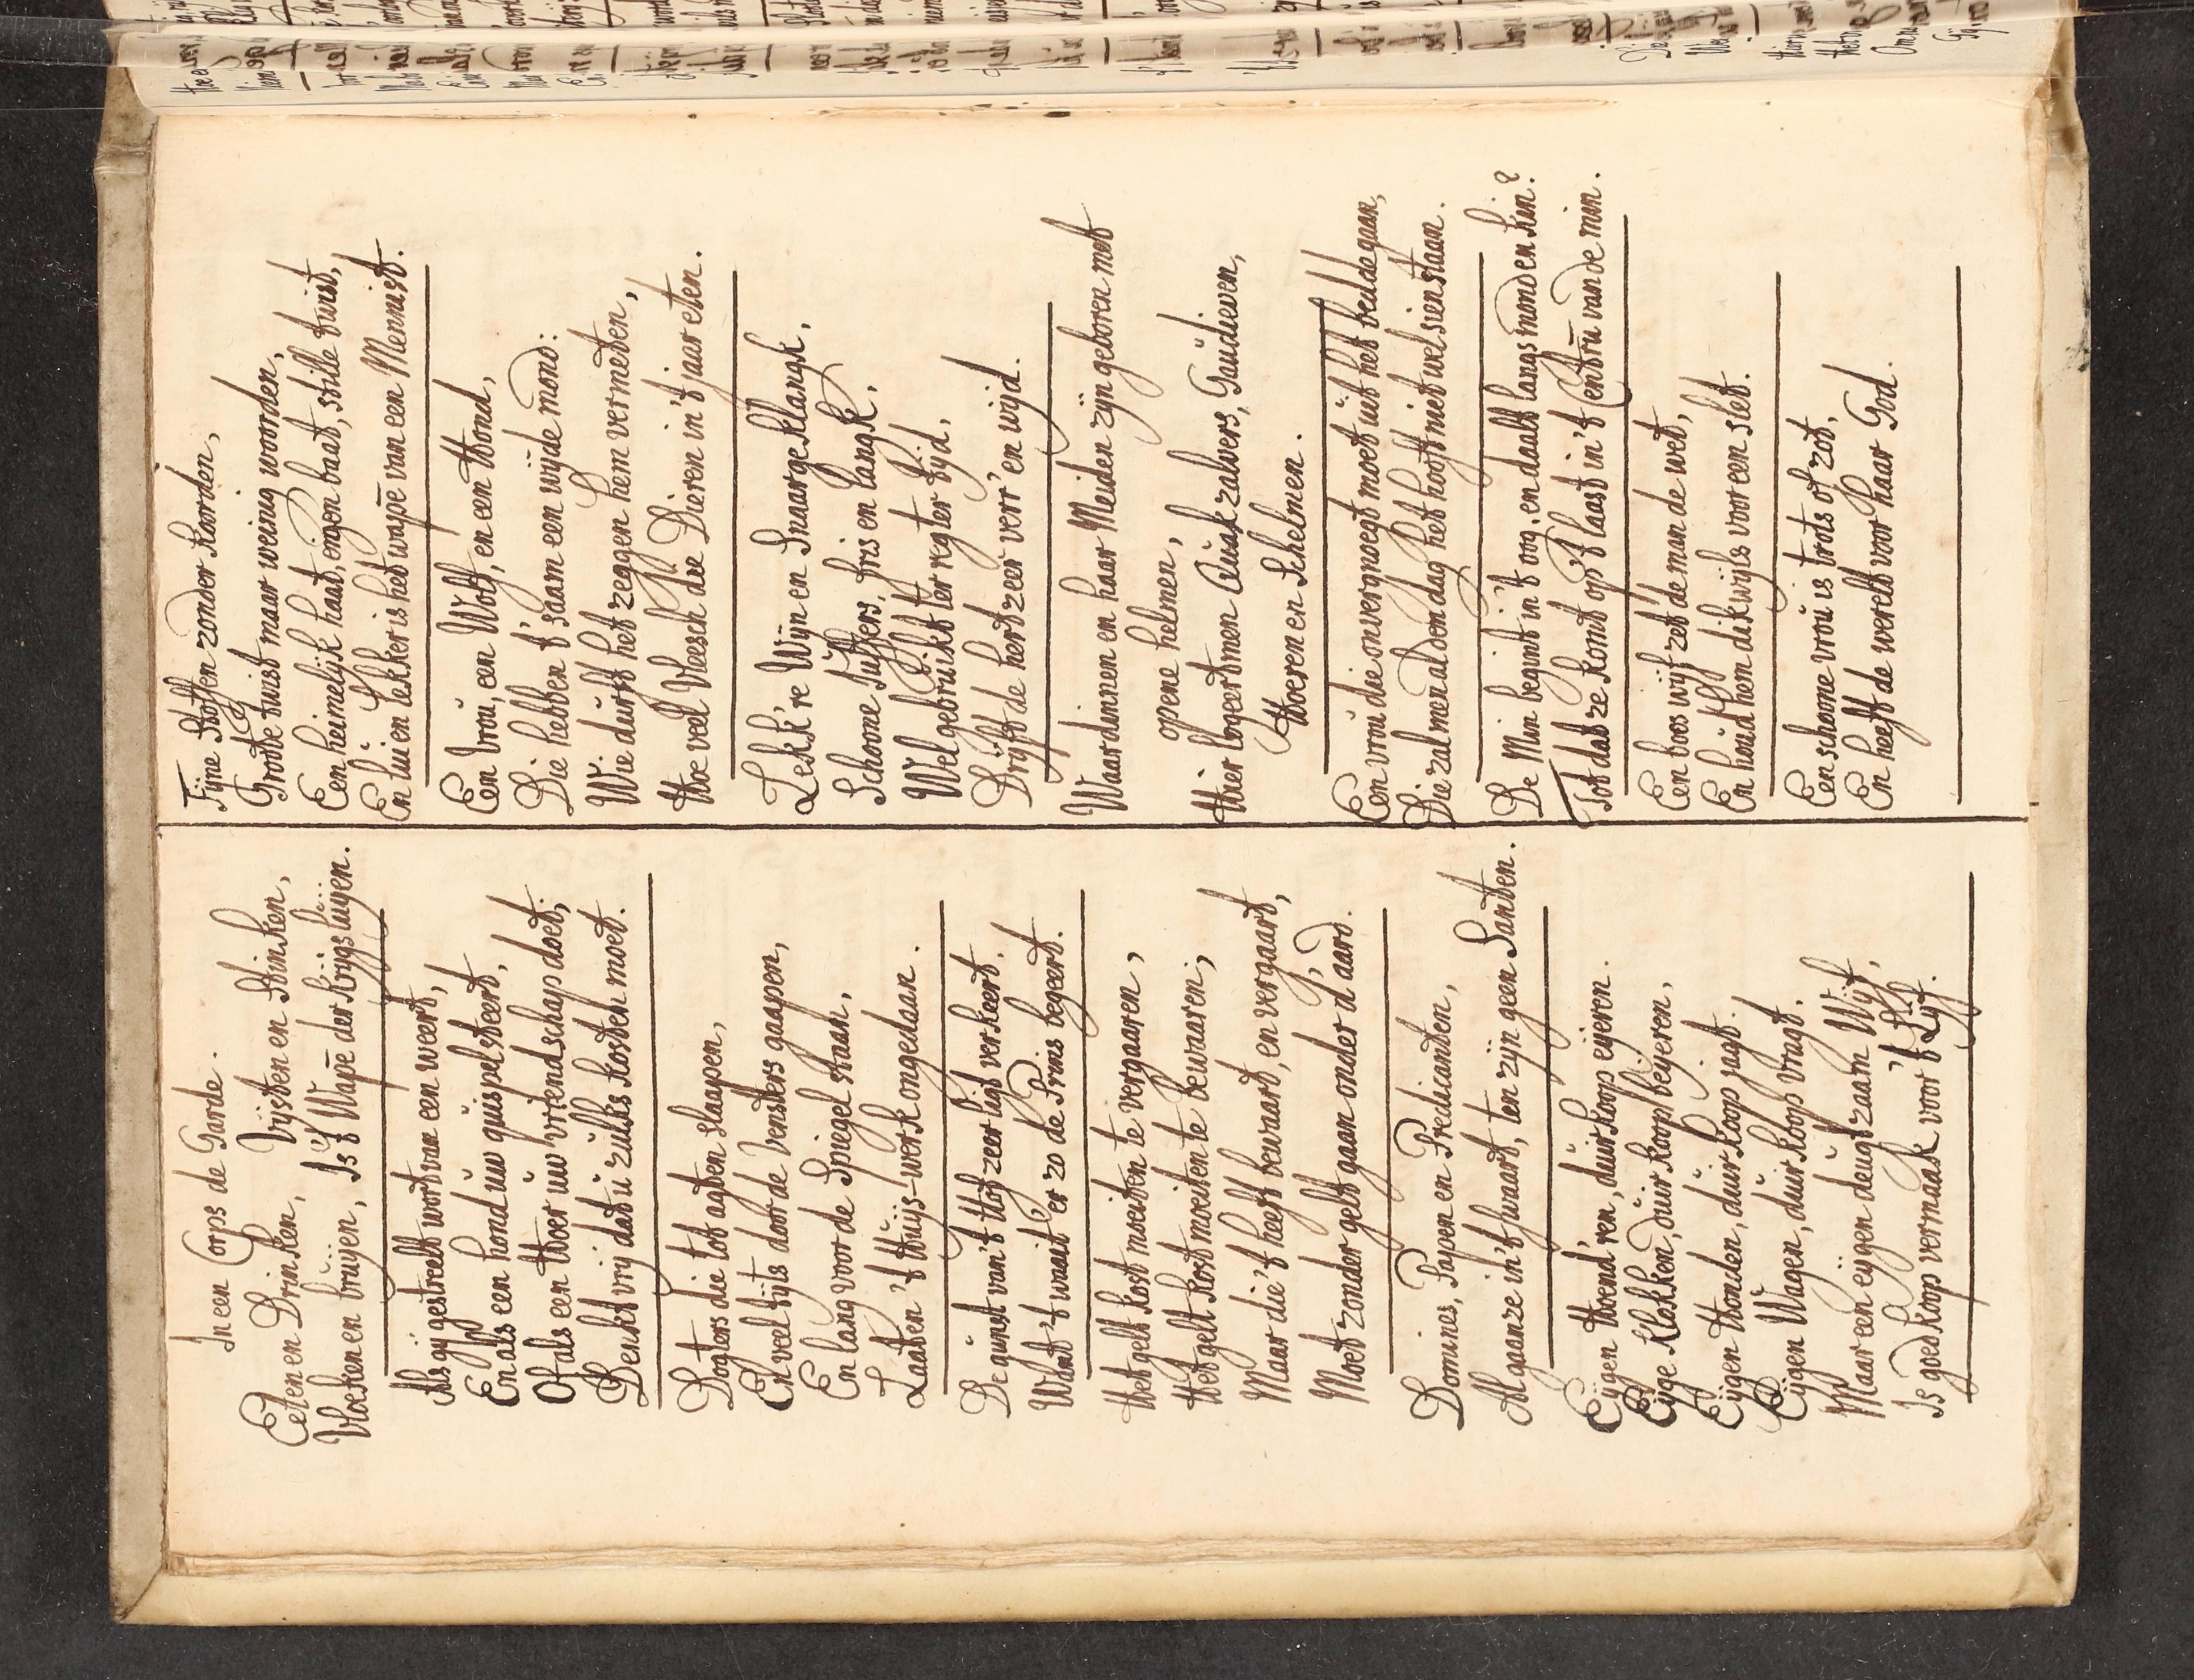 In een Corps de Garde.
Eeten en Drinken, Vijsten en Stinken,
Vloeken en bruijen, Is 't Wapē der krijgsluijen.
Als gij gestreelt wort van een weert,
En als een hond uw quispelsteert,
Of als een Hoer uw vriendschap doet,
Denkt vrij dat u zulks kosten moet.
Dogters die tot agten slaapen,
En veeltijts door de Vensters gaapen,
En lang voor de Spiegel staan,
Laaten 't Huijs-werk ongedaan.
De gunst van 't Hof zeer ligt verkeert.
Want 't waait 'er zo de Prins begeert.
Het gelt kost moeiten te vergaaren,
Het gelt kost moeiten te bewaaren,
Maar die 't heeft bewaart, en vergaart,
Moet zonder gelt gaan onder d'aard.
Domines, Papen en Predicanten,
Al gaan ze in 't swart, ten zijn geen Santen.
Eijgen Hoend'ren, duur koop eijeren.
Eijge Klokken, duur koop beijeren,
Eijgen Honden, duur koop jagt.
Eijgen Wagen, duur koop vragt.
Maar een eijgen deugtzaam Wijf,
Is goed koop vermaak voor 't Lijf.
Fijne Stoffen zonder koorden,
Groote twist maar weinig woorden,
Een heimelijk haat, eigen baat, stille twist,
En lui en lekker is het wapē van een Mennist.
Een Vrou, een Wolf, en een Hond,
Die hebben t'saam een wijde mond:
Wie durft het zeggen hem vermeten,
Hoe veel Vleesch die Dieren in 't jaar eten.
Lekk're Wijn en Snaargeklangk,
Schoone Juffers, fris en langk,
Wel gebruikt ter regter tijd,
Drijft de hert zeer verr' en wijd.
Waardinnen en haar Meiden zijn geboren met
opene helmen,
Hier logeert men Quakzalvers, Gaudieven,
Hoeren en Schelmen.
Een vrou die onvergnoegt moet uit het bedde gaan,
Die zal men al den dag het hooft niet wel sien staan.
De Min begint in 't oog, en daalt langs mond en kin?
Tot dat ze komt op 't laast in 't Centrū van de min.
Een boos wijf zet de man de wet,
En houd hem dikwijls voor een slet.
Een schoone vrou is trots of zot,
En heeft de werelt voor haar God.